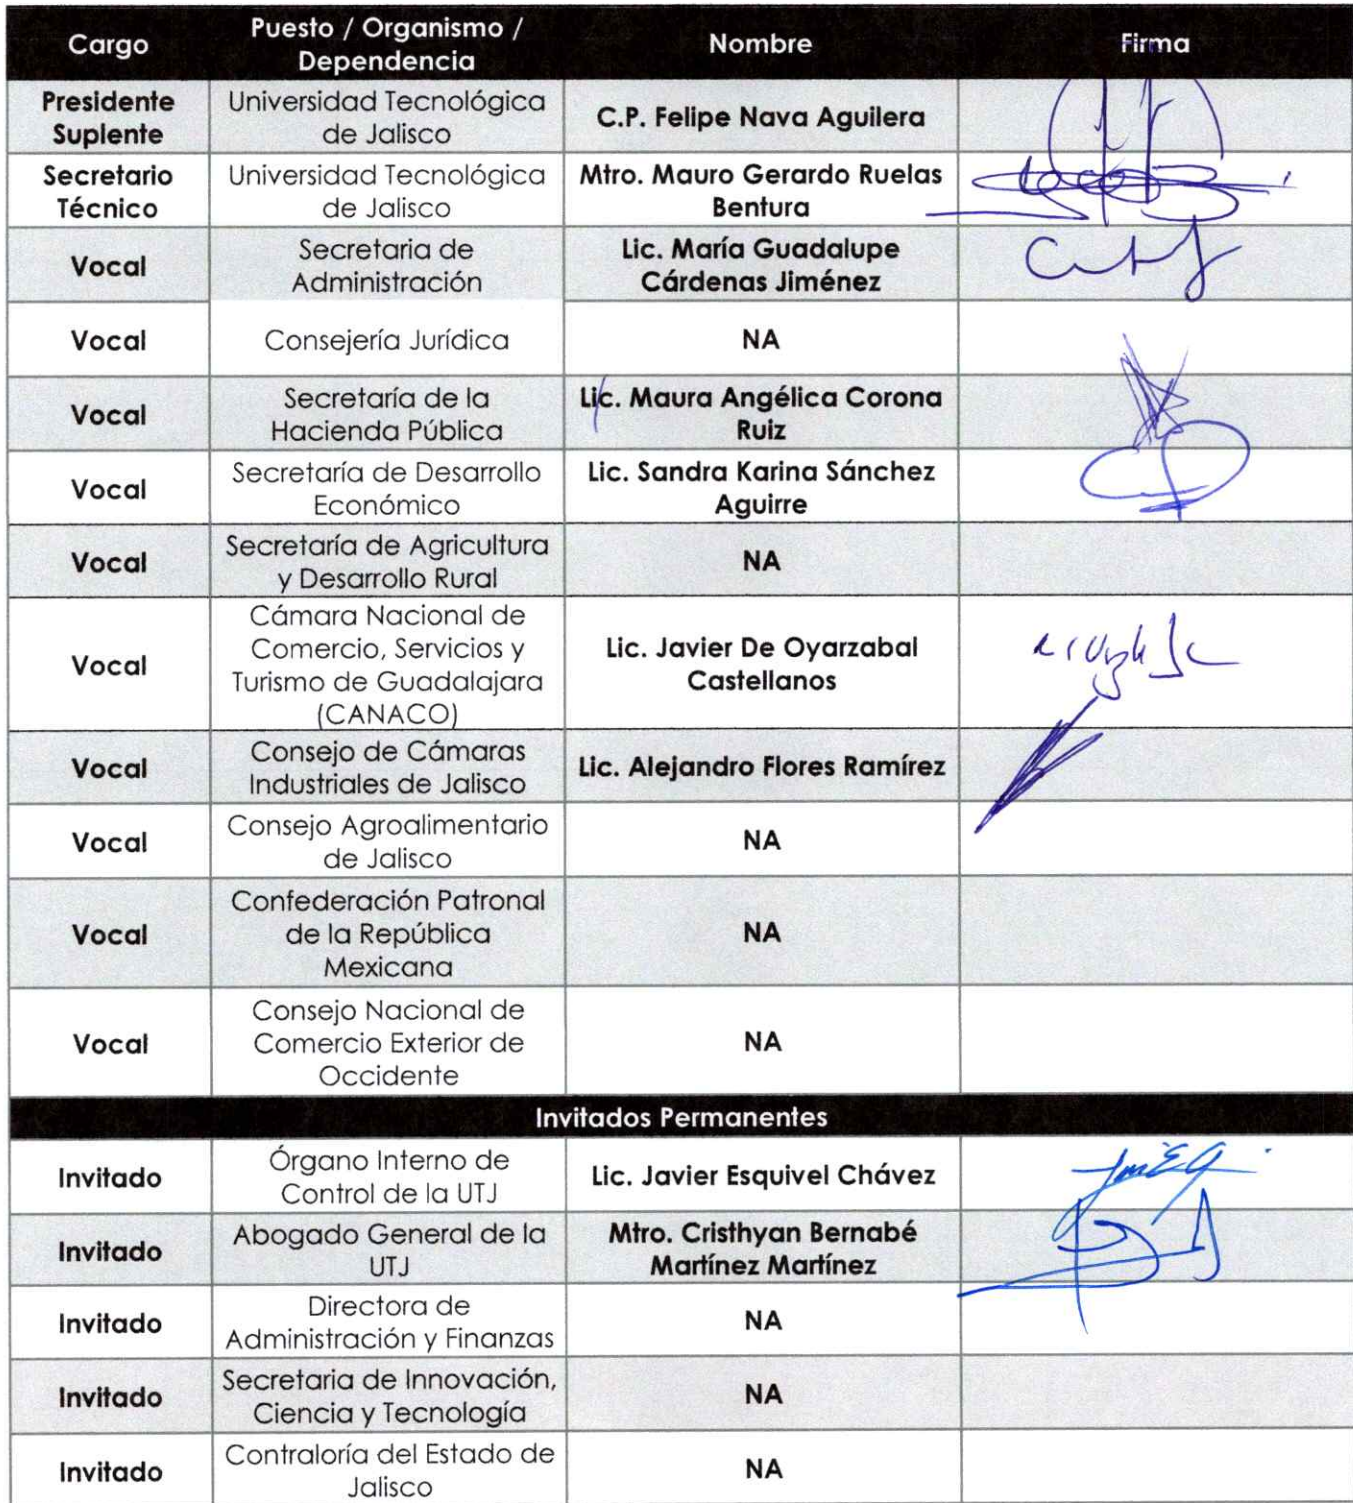 Cargo
Puesto / Organismo /
Dependencia
Nombre
Firma
Presidente
Suplente
Universidad Tecnológica
de Jalisco
C.P. Felipe Nava Aguilera
Secretario
Técnico
Universidad Tecnológica
de Jalisco
Mtro. Mauro Gerardo Ruelas
Bentura
Vocal
Secretaria de
Administración
Lic. María Guadalupe
Cárdenas Jiménez
Vocal
Consejería Jurídica
NA
Vocal
Secretaría de la
Hacienda Pública
Lic. Maura Angélica Corona
Ruiz
Vocal
Secretaría de Desarrollo
Económico
Lic. Sandra Karina Sánchez
Aguirre
Vocal
Secretaría de Agricultura
y Desarrollo Rural
NA
Vocal
Cámara Nacional de
Comercio, Servicios y
Turismo de Guadalajara
(CANACO)
Lic. Javier De Oyarzabal
Castellanos
Vocal
Consejo de Cámaras
Industriales de Jalisco
Lic. Alejandro Flores Ramírez
Vocal
Consejo Agroalimentario
de Jalisco
NA
Vocal
Confederación Patronal
de la República
Mexicana
NA
Vocal
Consejo Nacional de
Comercio Exterior de
Occidente
NA
Invitados Permanentes
Invitado
Órgano Interno de
Control de la UTJ
Lic. Javier Esquivel Chávez
Invitado
Abogado General de la
UTJ
Mtro. Cristhyan Bernabé
Martínez Martínez
Invitado
Directora de
Administración y Finanzas
NA
Invitado
Secretaria de Innovación,
Ciencia y Tecnología
NA
Invitado
Contraloría del Estado de
Jalisco
NA